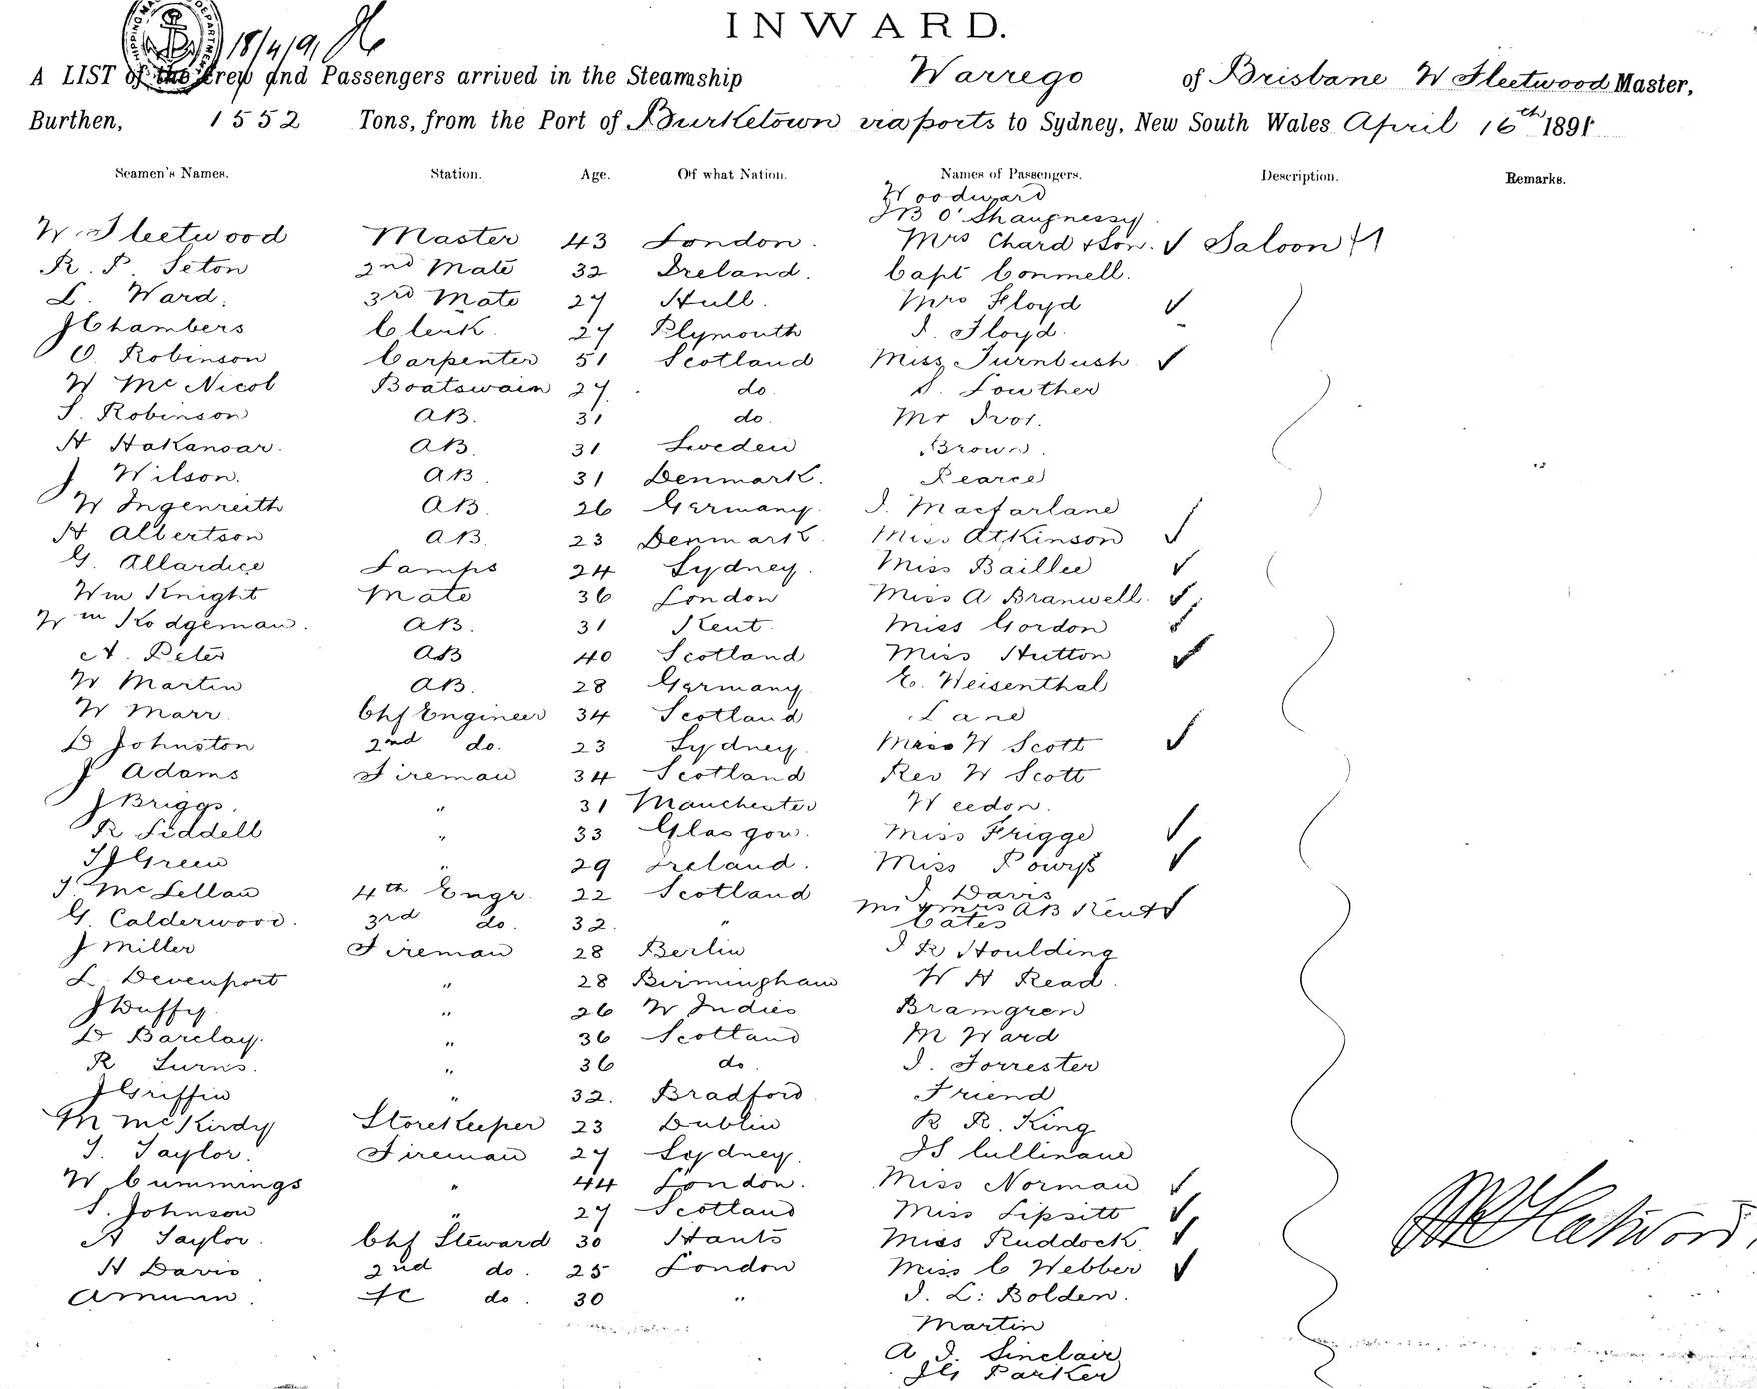 INWARD.
18/4/91
A LIST of the Crew and Passengers arrived in the Steamship Warrego of Brisbane W Fleetwood Master,
Burthen, 1552 Tons, from the Port of Burketown via ports to Sydney, New South Wales April 16th 1891
Seamen's Names. Station. Age. Of what Nation. Names of Passengers. Description. Remarks.
Woodward
JB O'Shaugnessy
W Fleetwood Master 43 London. Mrs Chard & Son. ✓ Saloon
R. P. Seton 2nd Mate 32 Ireland. Capt Conmell.
L. Ward. 3rd Mate 27 Hull. Mrs Floyd ✓
J Chambers Clerk 27 Plymouth J. Floyd.
O. Robinson Carpenter 51 Scotland Miss Turnbush ✓
W McNicol Boatswain 27 do S. Louther
S. Robinson AB. 31 do. Mr Ivor.
H Hakanoar. AB. 31 Sweden Brown.
J Wilson. AB. 31 Denmark. Pearce
W Ingenreith AB. 26 Germany. J. Macfarlane
H Albertson AB. 23 Denmark. Miss Atkinson ✓
G. Allardice Lamps 24 Sydney. Miss Baillee ✓
Wm Knight Mate 36 London Miss A Branwell. ✓
Wm Kodgeman. AB. 31 Kent Miss Gordon ✓
A. Peter AB 40 Scotland Miss Hutton ✓
W. Martin AB. 28 Germany. E. Weisenthal
W Marr. Chf Engineer 34 Scotland Lane
D Johnston 2nd do. 23 Sydney. Miss W Scott ✓
J Adams Fireman 34 Scotland Rev W Scott
J Briggs. " 31 Manchester Weedon.
R Liddell " 33 Glasgow. Miss Frigge ✓
TJ Green " 29 Ireland. Miss Powys ✓
J. McLellan 4th Engr. 22 Scotland J. Davis
Mr & Mrs AB Kent ✓
G. Calderwood. 3rd do. 32. " Cates
J Miller Fireman 28 Berlin J R Houlding
L. Devenport " 28 Birmingham W H Read.
J Duffy. " 26 W Indies Bramgren
D Barclay. " 36 Scotland M Ward
R Lurns. " 36 do. J. Forrester
J Griffin " 32. Bradford Friend
M McKirdy Storekeeper 23 Dublin R R. King
T. Taylor. Fireman 27 Sydney. JS Cullinane
W Cummings " 44 London. Miss Norman ✓
S. Johnson " 27 Scotland Miss Lipsitt ✓
A Taylor. Chf Steward 30 Hants Miss Ruddock ✓
H Davis 2nd do. 25 London Miss C Webber ✓
Amunn. do. 30 " J. L. Bolden.
Martin
A J. Sinclair
JG Parker
W Fleetwood